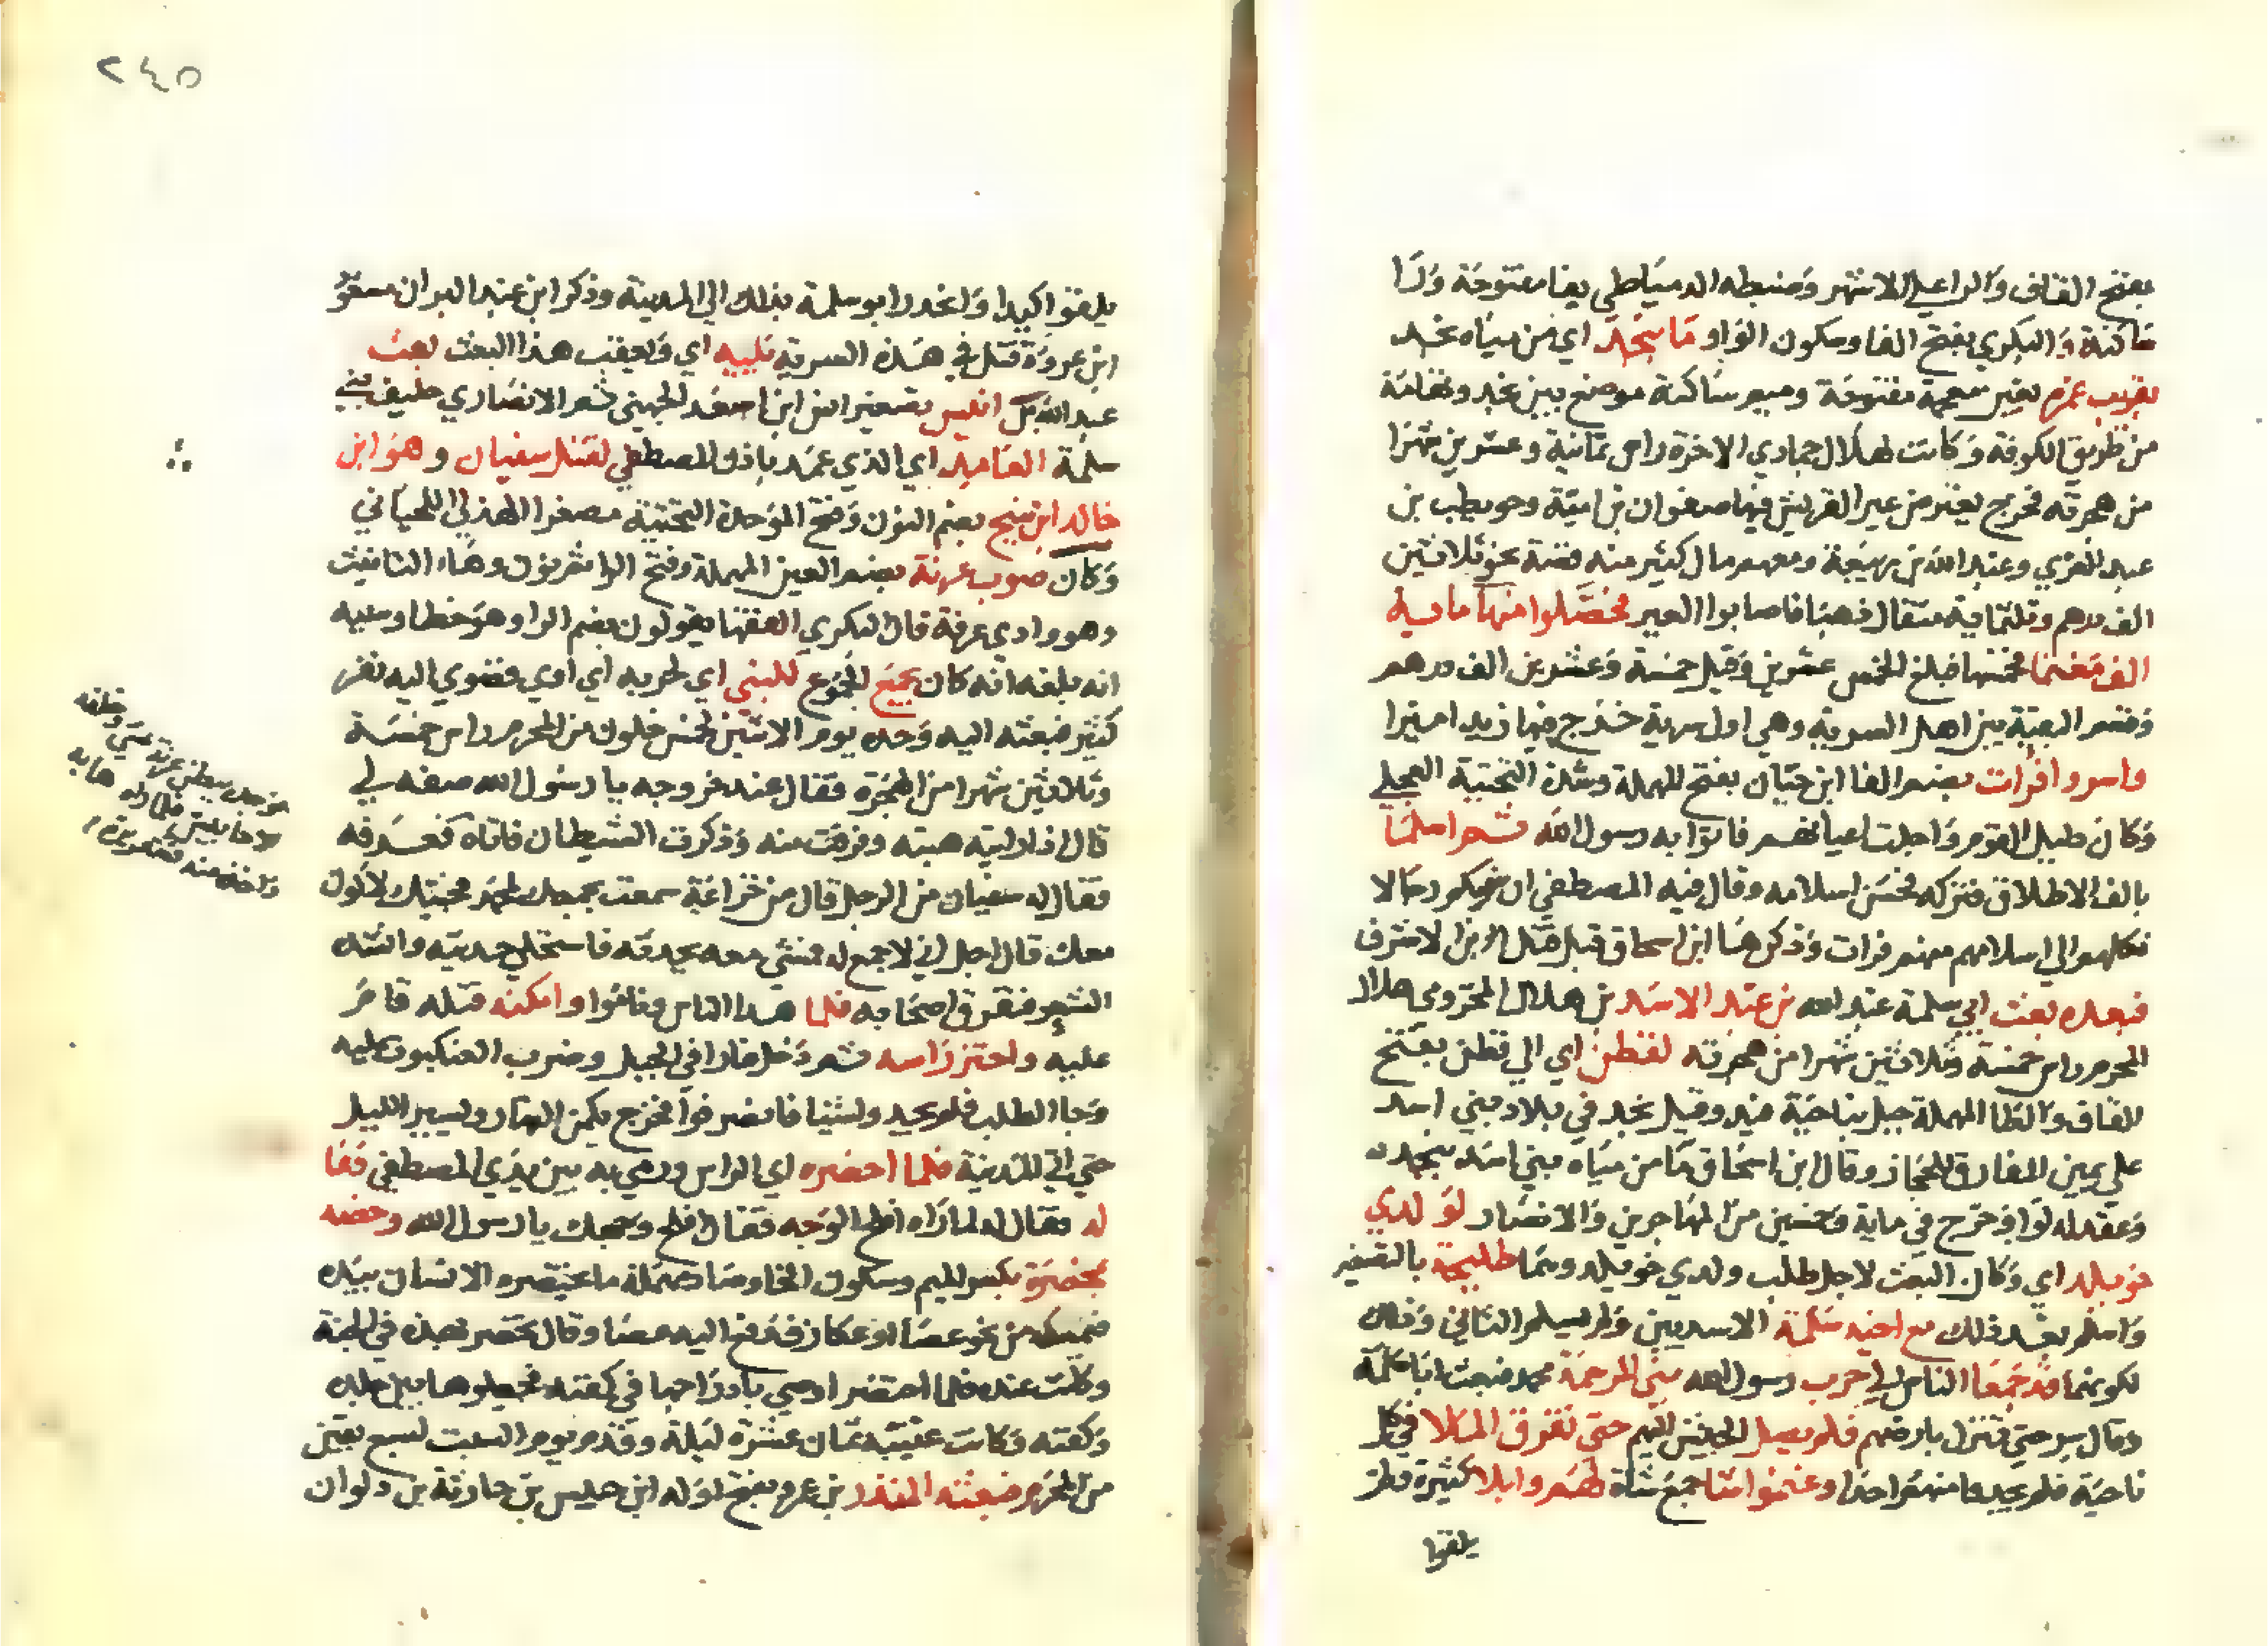 بفتح القاف والراعلي الاشهر وضبطه الدمياطي بفا مفتوحة ورا
ساكنة والبكري بفتح الفا وسكون الواو ما بنجد اي من مياه نجد
بقريب غمر بغين معجمة مفتوحة وميم ساكنة موضع بين نجد وتهامة
من طريق الكوفة وكانت لهلال جمادي الاخرة راس ثمانية وعشرين شهرا
من هجرته فخرج يعترض عير القريش فيها صفوان بن امية وحويطب بن
عبد العزي وعبد الله بن ربيعة ومعهم مال كثير منه فضة نحو ثلاثين
الف درهم وثلثماية مثقال ذهبا فاصابوا العير فحصلوا منها ماية
الف مغنما فخمسها فبلغ الخمس عشرين وقيل خمسة وعشرين الف درهم
وقسم البقية بين اهل السرية وهي اول سرية خرج فيها زيد اميرا
واسروا فرات بضم الفا ابن حيان بفتح المهملة وشدة التحتية العجلي
وكان دليل القوم وافلت اعيانهم فاتوا به رسول الله ثم اسلما
بالف الاطلاق فتركه فحسن اسلامه وقال فيه المصطفي ان منكم رجالا
نكلهم الي اسلامهم منهم فرات وذكرها ابن اسحاق قبل قتل ابن الاشرف
فبعده بعث ابي سلمة عبد الله بن عبد الاسد بن هلال المخزومي هلال
المحرم راس خمسة وثلاثين شهرا من هجرته لقطن اي الي قطن بفتح
القاف والطا المهملة جبل بناحية فيد وقيل بنجد في بلاد بني اسد
علي يمين المفارق للحجاز وقال ابن اسحاق ما من مياه بني اسد بنجد
وعقد له لوا فخرج في ماية وخمسين من المهاجرين والانصار لولدي
خويلد اي وكان البعث لاجل طلب ولدي خويلد وهما طليحة بالتصغير
واسلم بعد ذلك مع اخيه سلمة الاسديين ولم يسلم الثاني وذلك
لكونهما قد جمعا الناس الي حرب رسول الله نبي المرحمة محمد فبعث ابا سلمة
وقال سر حتي تنزل بارضهم فلم يصل الجيش اليهم حتي تفرق الملا في كل
ناحية فلم يجدوا منهم احدا وغنموا شا جمع شاة لهم وابلا كثيرة ولم
يلقوا
٢٤٥
يلقوا كيدا وانحدر ابو سلمة بذلك الي المدينة وذكر ابن عبد البر ان مسعود
ابن عروة قتل في هذه السرية يليه اي ويعقب هذا البعث بعث
عبد الله بن انيس بتصغير انس ابن اسعد الجهني ثم الانصاري حليف بني
سلمة العامد اي الذي عمد باذن المصطفي لقتل سفيان وهو ابن
خالد ابن نبيح بضم النون وفتح الموحدة التحتية مصغرا الهذلي اللحياني
وكان صوب عرنة بضم العين المهملة وفتح الرا ثم نون وهاء التانيث
وهو وادي عرفة قال البكري الفقها يقولون بضم الرا وهو خطا وسببه
انه بلغه انه كان يجمع الجموع للنبي اي لحربه اي اوي فضوي اليه نفر
كثير فبعثه اليه وحده يوم الاثنين لخمس خلون من المحرم راس خمسة
وثلاثين شهرا من الهجرة فقال عند خروجه يا رسول الله صفه لي
قال اذا رايته هبته وفرقت منه وذكرت الشيطان فاتاه فعرفه
فقال له سفيان من الرجل قال من خزاعة سمعت بجمعك لمحمد فجئتك لاكون
معك قال اجل اني لاجمع له فمشي معه يحدثه فاستحلي حديثه وانشده
الشعر فتفرق اصحابه فلما هدا الناس وناموا وامكنه قتله قام
عليه واحتز راسه ثم دخل غارا في الجبل وضرب العنكبوت عليه
وجا الطلب فلم يجدوا شيا فانصرفوا فخرج يكمن النهار ويسير الليل
حتي اتي المدينة فلما احضره اي الراس ورمي به بين يدي المصطفي دعا
له فقال له لما راه افلح الوجه فقال افلح وجهك يا رسول الله وخصه
بمخصرة بكسر الميم وسكون الخا وصاد مهملة ما يختصره الانسان بيده
فيمسكه من نحو عصا او عكاز فدفع اليه عصا وقال تخصر بهذه في الجنة
وكانت عنده فلما احتضر اوصي بادراجها في كفنه فجعلوها بين جلده
وكفنه وكانت غيبته ثمان عشرة ليلة وقدم يوم السبت لسبع بقين
من المحرم فبعثه المنذر بن عمرو بفتح اوله ابن خنيس بن حارثة بن لوذان